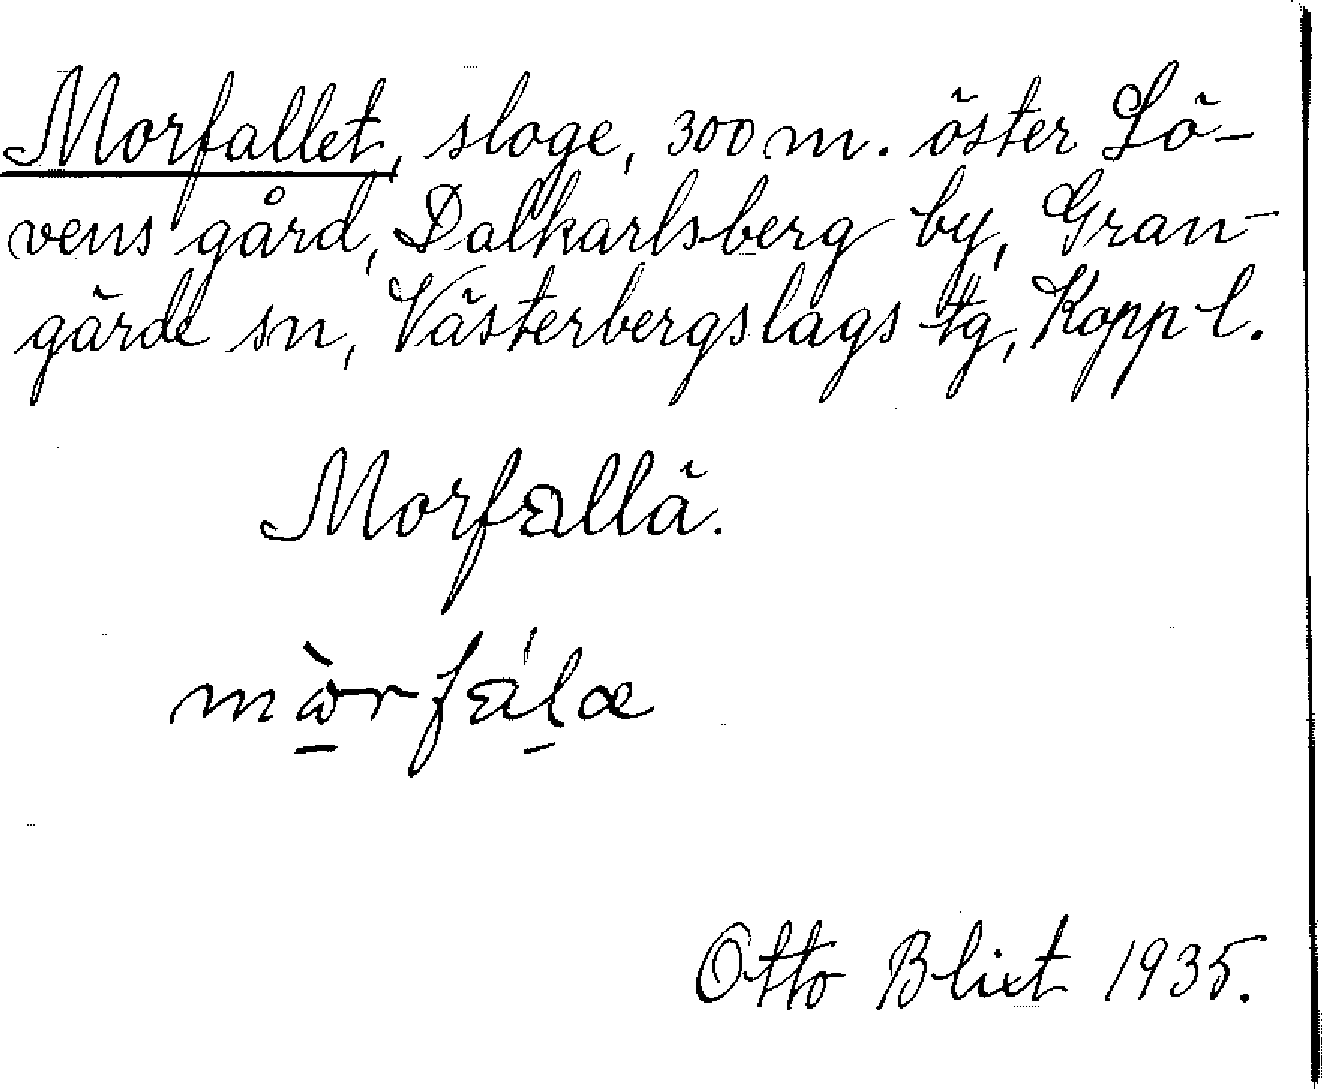 Morfallet, sloge, 300 m. öster Lö-
vens gård, Dalkarlsberg by, Gran-
gärde sn, Västerbergslags tg, Kopp l.
Morfallä.
mòrfálæ
Otto Blixt 1935.